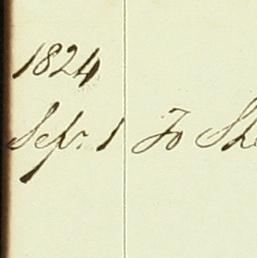 1824
Sep. 1 To